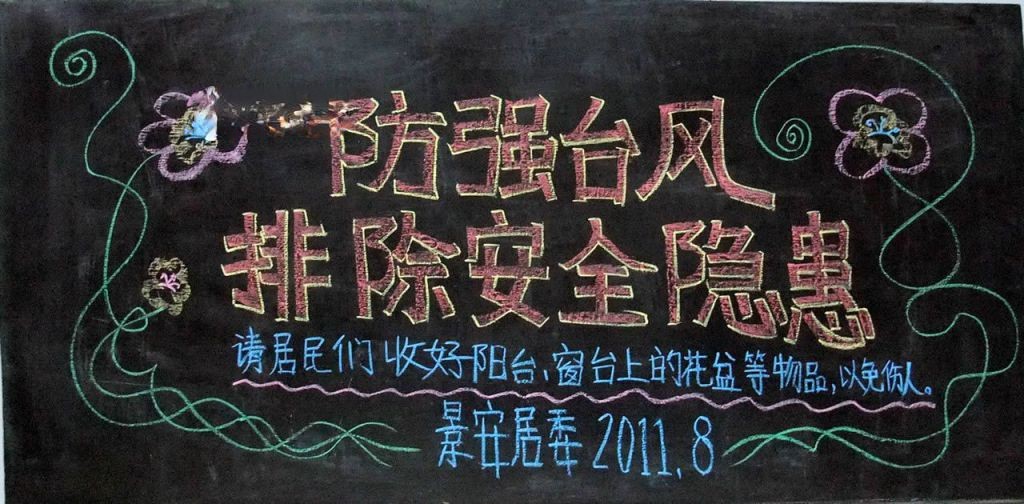 防强台风
排除安全隐患
请居民们收好阳台、窗台上的花盆等物品，以免伤人。
景安居委 2011.8